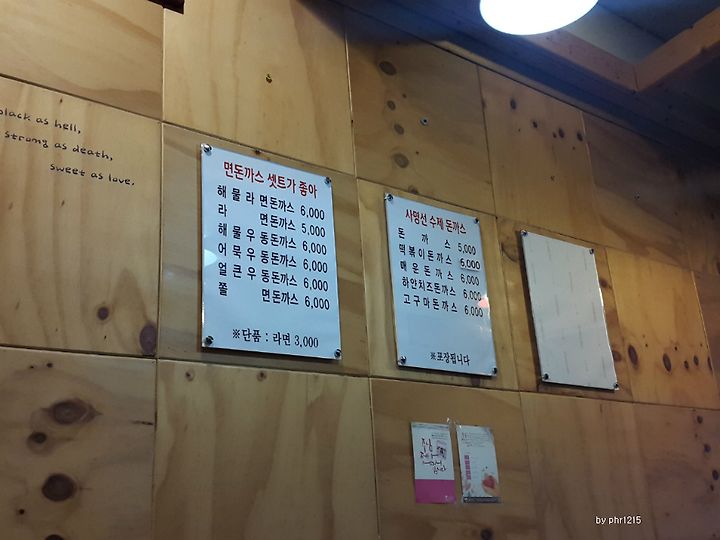 black as hell,
strong as death,
sweet as love.
면돈까스 셋트가 좋아
해물라면돈까스 6,000
라 면돈까스 5,000
해물우동돈까스 6,000
어묵우동돈까스 6,000
얼큰우동돈까스 6,000
쫄 면돈까스 6,000
※단품 : 라면 3,000
사명선 수제 돈까스
돈 까 스 5,000
떡볶이돈까스 6,000
매운돈까스 6,000
하얀치즈돈까스 6,000
고구마돈까스 6,000
※포장됩니다
by phr1215